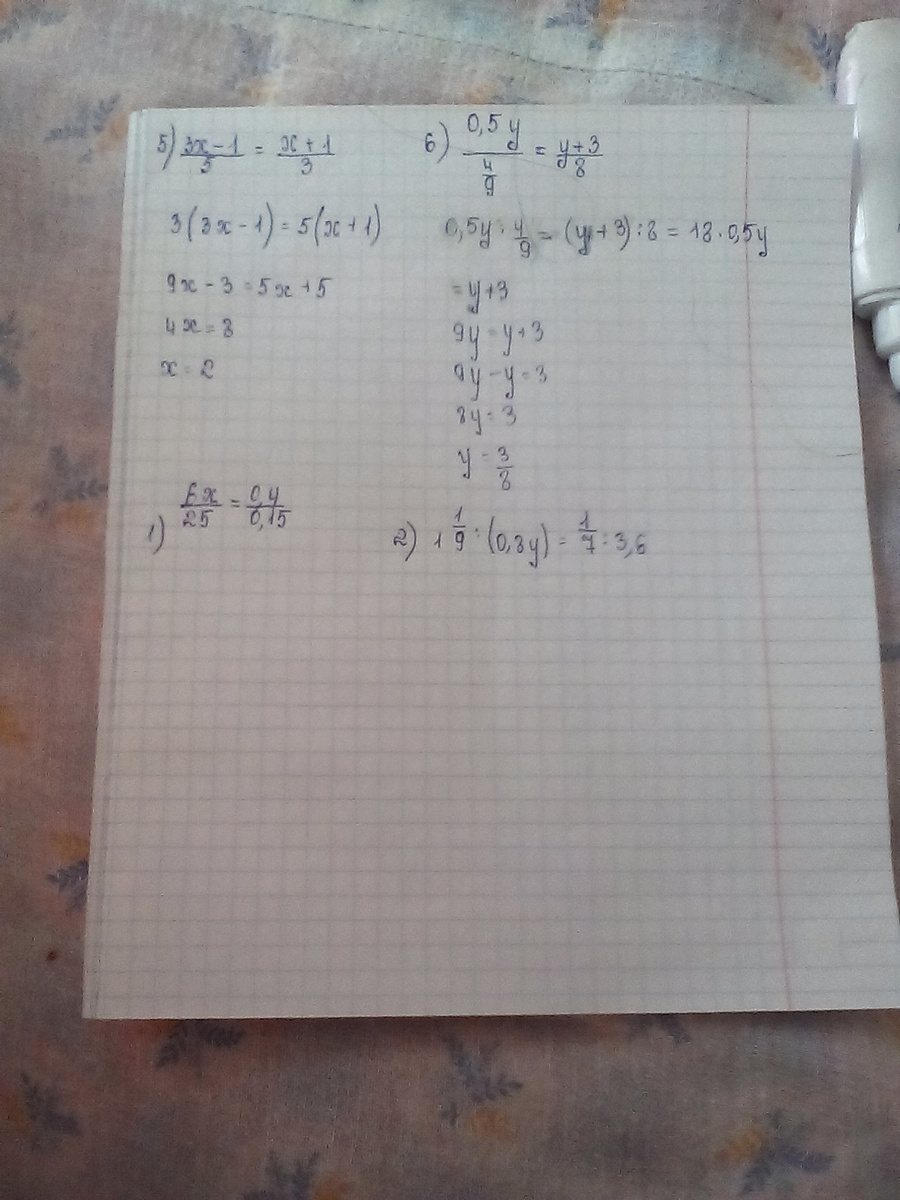 5) (3x-1)/5 = (x+1)/3
3(3x-1)=5(x+1)
9x-3=5x+5
4x=8
x=2
6) 0,5y/(4/9) = (y+3)/8
0,5y:4/9=(y+3):8=18·0,5y
=y+3
9y=y+3
9y-y=3
8y=3
y=3/8
1) 6x/25=0,4/0,15
2) 1 1/9:(0,8y)=1/7:3,6